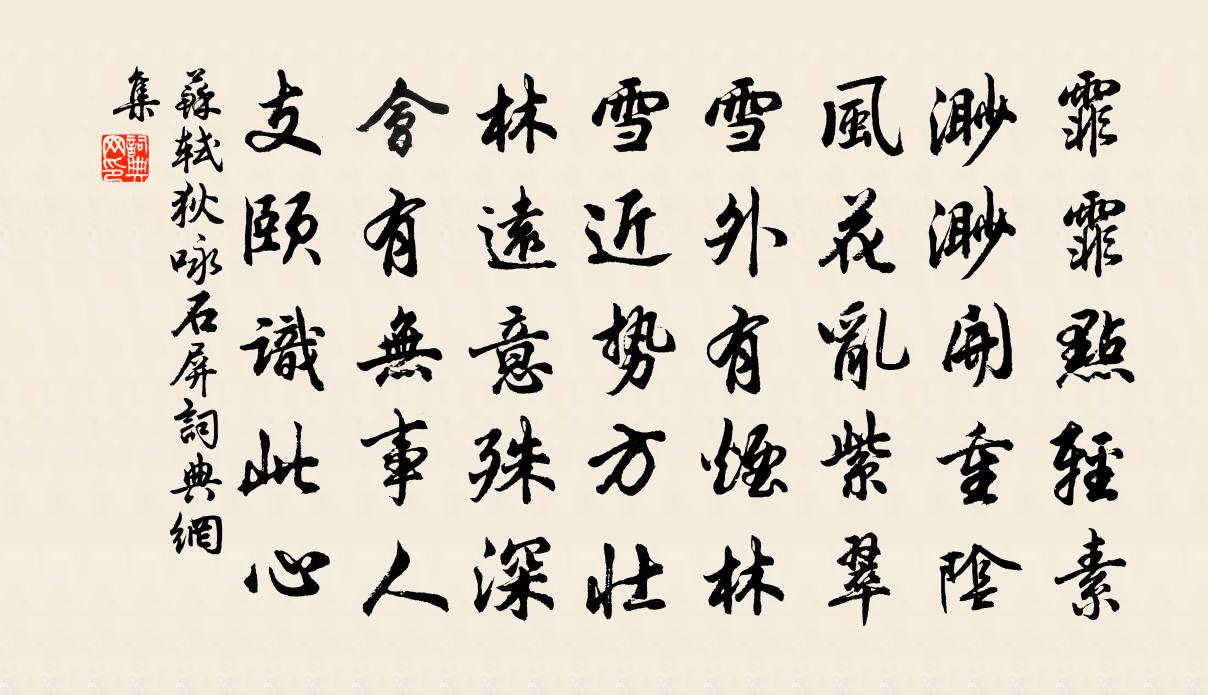 霏霏點輕素
渺渺開重陰
風花亂紫翠
雪外有煙林
雪近勢方壯
林遠意殊深
會有無事人
支頤識此心
蘇軾狄咏石屏詞典網
集
詞典
网印